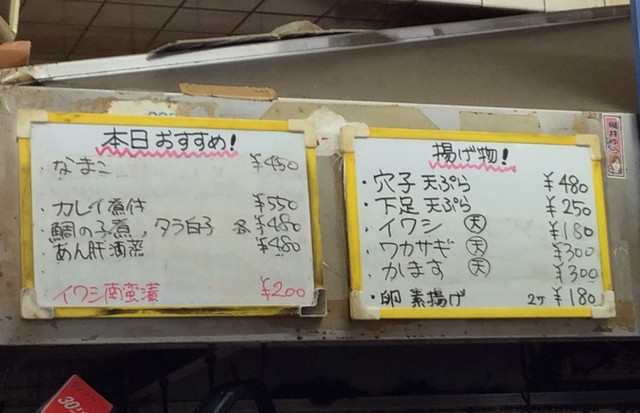 本日おすすめ!
・なまこ ¥450
カレイ煮付 ¥550
鯛の子煮、タラ白子 各¥480
あん肝酒蒸 ¥480
イワシ南蛮漬 ¥200
揚げ物!
・穴子 天ぷら ¥480
・下足 天ぷら ¥250
・イワシ 天 ¥180
・ワカサギ 天 ¥300
・かます 天 ¥300
・卵 素揚げ 2ケ ¥180